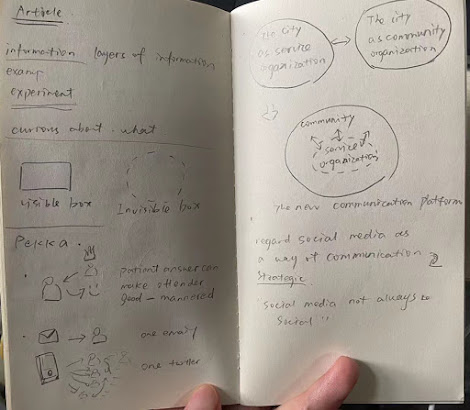 Article.
information layers of information
examp
experiment
currous about . what
visible box
Invisible box
Pekka .
patient answer can
make offender
good - mannered
one email
one twitter
The city
as service
organization
The city
as community
organization
community
service
organization
The new communication platform
regard social media as
a way of communication
strategic
"social media not always to
social "